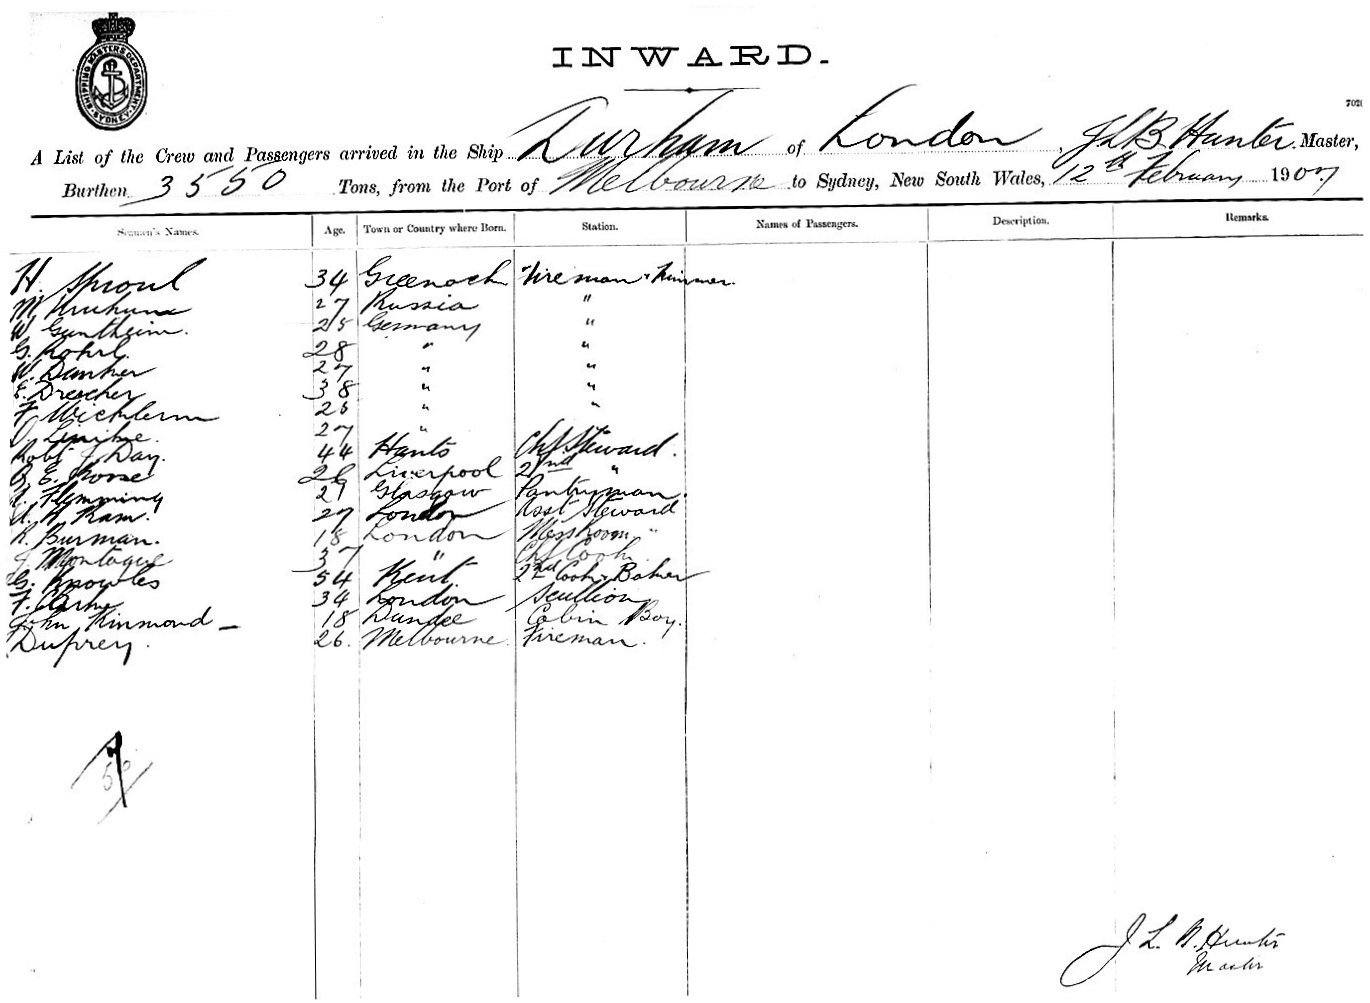 SHIPPING MASTERS DEPARTMENT SYDNEY
INWARD.
A List of the Crew and Passengers arrived in the Ship Durham of London, J L B Hunter Master,
Burthen 3550 Tons, from the Port of Melbourne to Sydney, New South Wales, 12th February 1907
Seamen's Names. Age. Town or Country where Born. Station. Names of Passengers. Description. Remarks.
H. Sproul 34 Greenock Fireman & Trimmer.
M 27 Russia "
W Guntheim. 25 Germany "
G. Rohrl. 28 " "
W. Danker 27 " "
E. Drescher 38 " "
F. 25 " "
27 "
Robt J. Day. 44 Hants Chf Steward.
E. 26 Liverpool 2nd "
Flemming 21 Glasgow Pantryman.
H Ram. 27 London Asst Steward
R. Burman. 18 London Messroom "
J Montague 37 " Chf Cook
G. Knowles 54 Kent. 2nd Cook & Baker
F. Clarke 34 London Scullion
John Kinmond 18 Dundee Cabin Boy.
Duprey. 26. Melbourne. Fireman.
J L. B. Hunter
Master